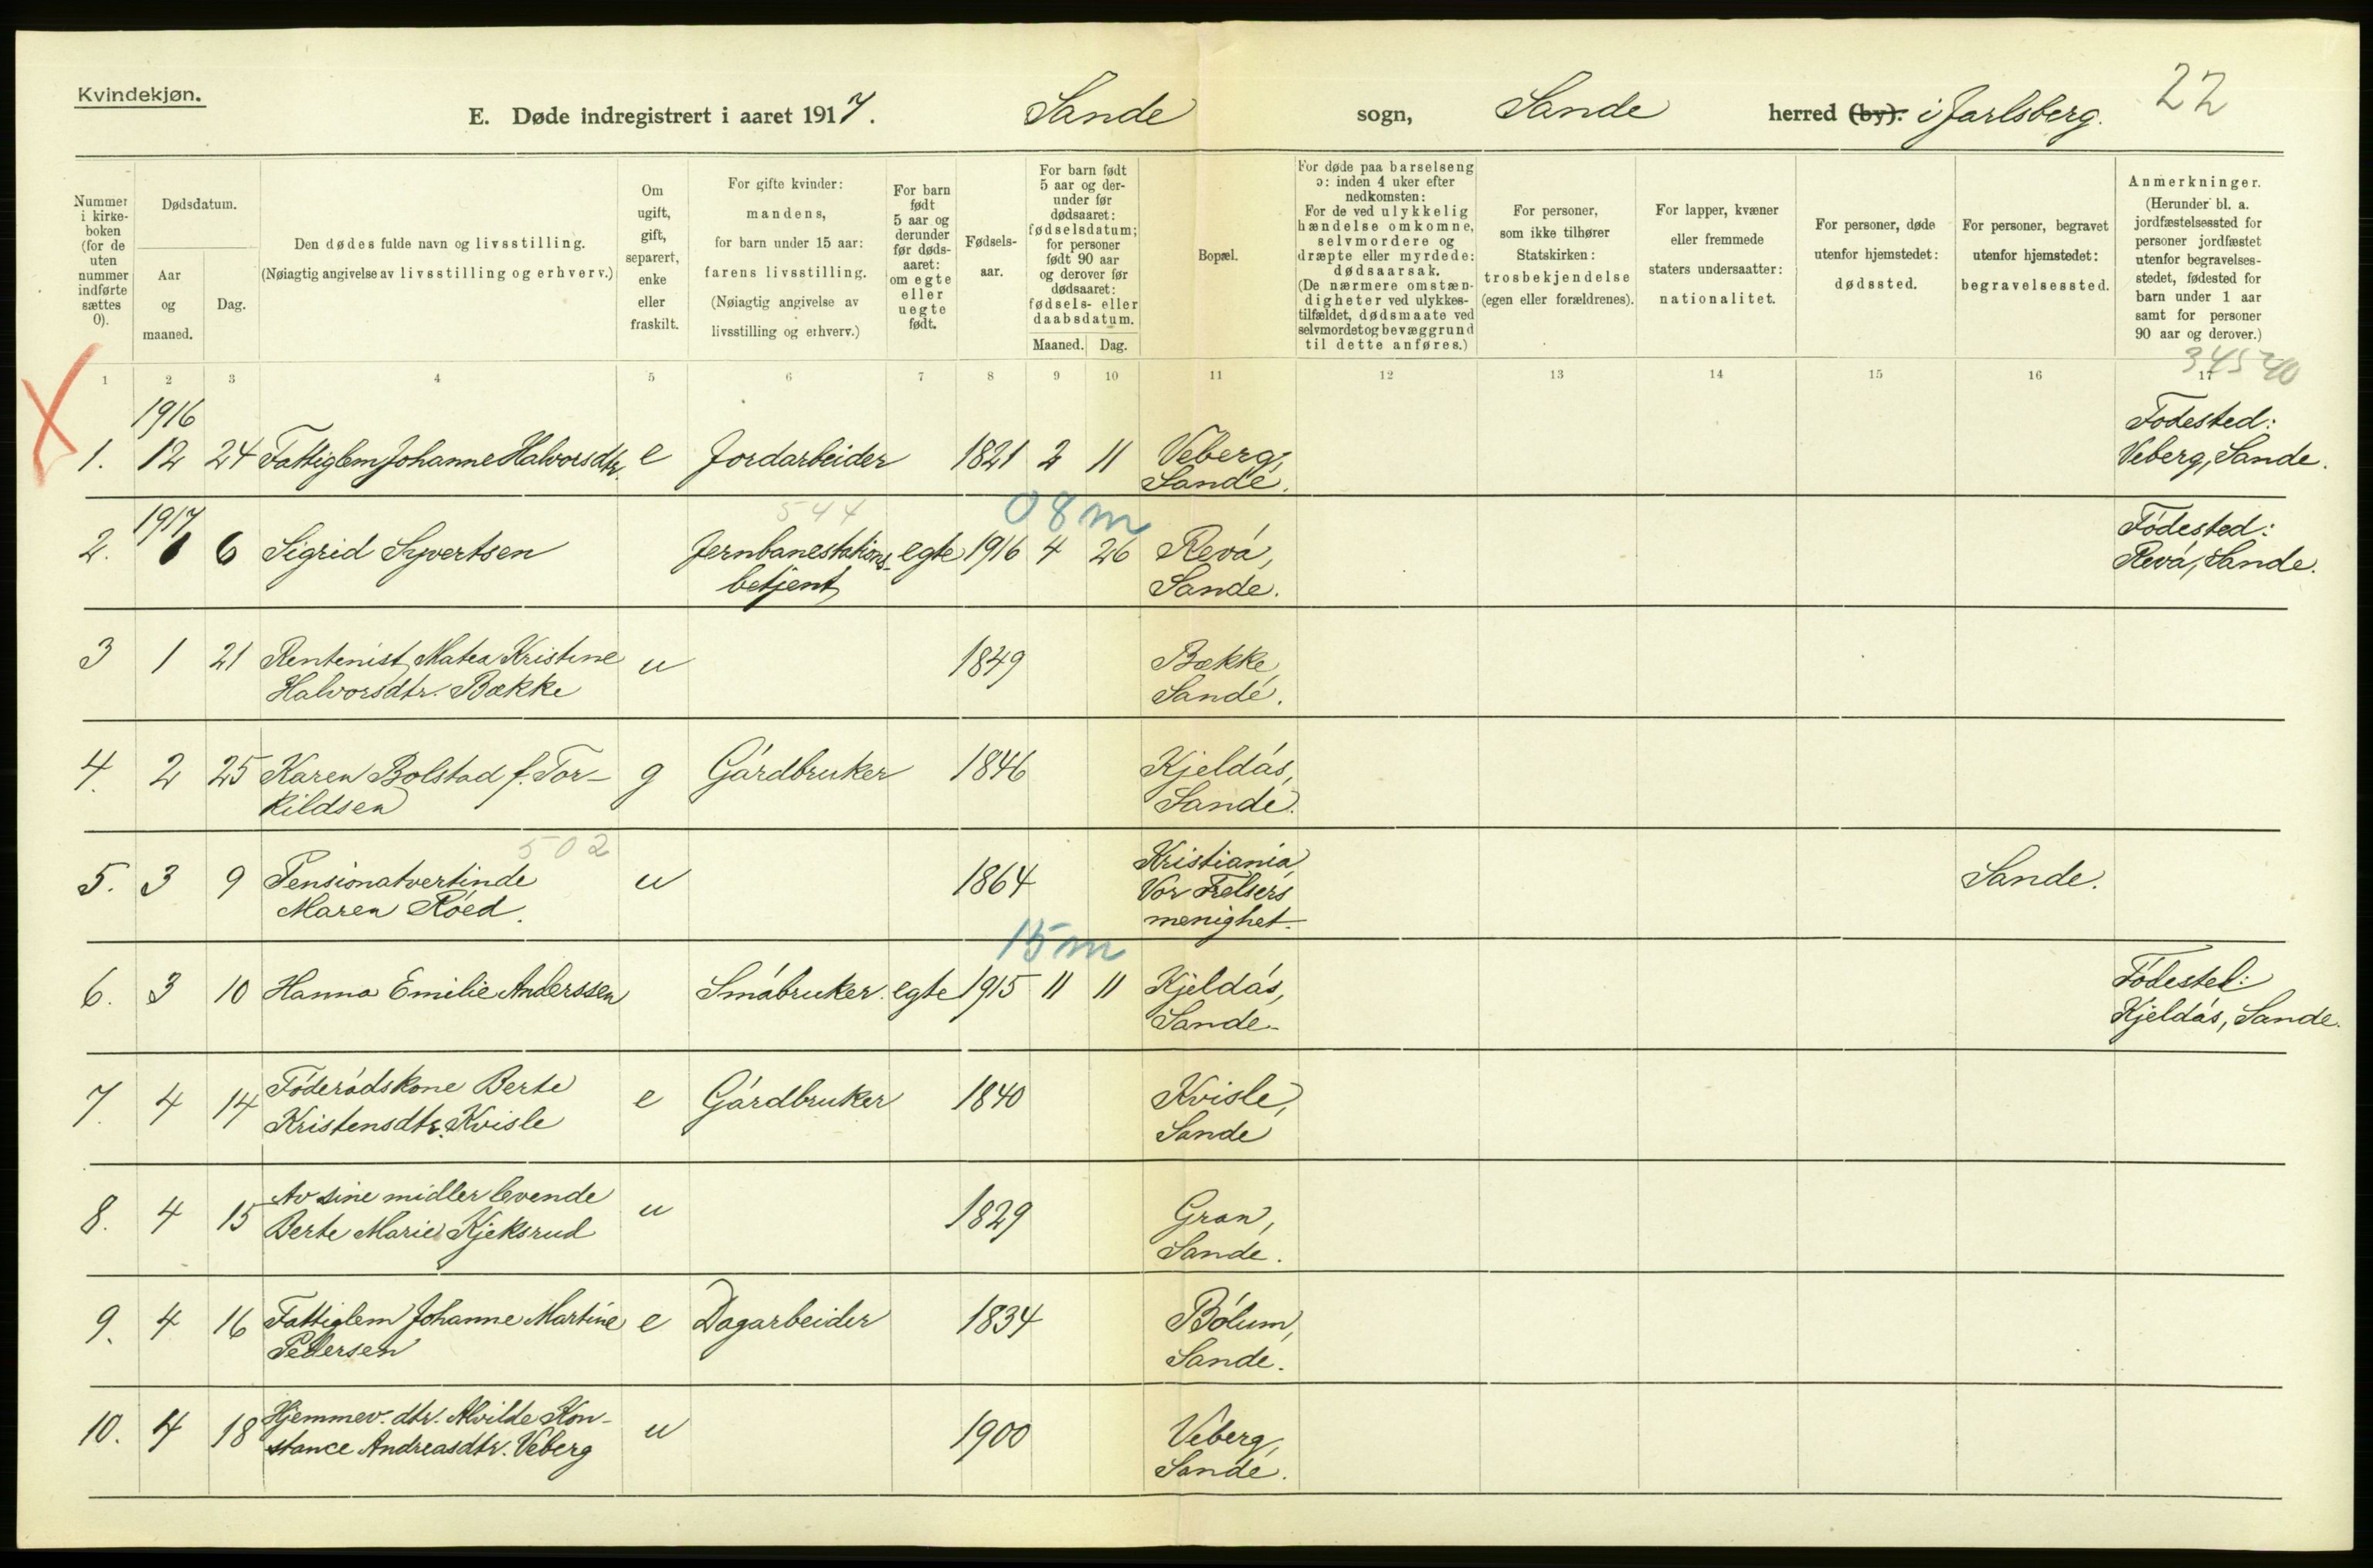 Kvindekjøn.
22
E. Døde indregistrert i aaret 1917. Sande sogn, Sande herred (by): i Jarlsberg.
Nummer
i kirke-
boken
(for de
uten
nummer
indførte
sættes
0).
Dødsdatum.
Aar
og
maaned.
Dag.
Den dødes fulde navn og livsstilling.
(Nøiagtig angivelse av livsstilling og erhverv.)
Om
ugift,
gift,
separert,
enke
eller
fraskilt.
For gifte kvinder:
mandens,
for barn under 15 aar:
farens livsstilling.
(Nøiagtig angivelse av
livsstilling og erhverv.)
For barn
født
5 aar og
derunder
før døds-
aaret:
om egte
eller
uegte
født.
Fødsels-
aar.
For barn født
5 aar og der-
under før
dødsaaret:
fødselsdatum;
for personer
født 90 aar
og derover før
dødsaaret:
fødsels- eller
daabsdatum.
Maaned. Dag.
Bopæl.
For døde paa barselseng
ɔ: inden 4 uker efter
nedkomsten:
For de ved ulykkelig
hændelse omkomne,
selvmordere og
dræpte eller myrdede:
dødsaarsak.
(De nærmere omstæn-
digheter ved ulykkes-
tilfældet, dødsmaate ved
selvmordet og bevæggrund
til dette anføres.)
For personer,
som ikke tilhører
Statskirken:
trosbekjendelse
(egen eller forældrenes).
For lapper, kvæner
eller fremmede
staters undersaatter:
nationalitet.
For personer, døde
utenfor hjemstedet:
dødssted.
For personer, begravet
utenfor hjemstedet:
begravelsessted.
Anmerkninger.
(Herunder bl. a.
jordfæstelsessted for
personer jordfæstet
utenfor begravelses-
stedet, fødested for
barn under 1 aar
samt for personer
90 aar og derover.)
1 2 3 4 5 6 7 8 9 10 11 12 13 14 15 16 17
1916
Fødested:
1. 12 24 Fattiglem Johanne Halvorsdtr. e Jordarbeider 1821 2 11 Veberg, Veberg, Sande.
Sande.
544 08m
1917
Fødested:
2. 1 6 Sigrid Syvertsen Jernbanestations- egte 1916 4 26 Revå, Revå, Sande.
betjent Sande.
3 1 21 Rentenist Matea Kristine u 1849 Bække,
Halvorsdtr. Bække Sande.
4. 2 25 Karen Bolstad f. Tor- g Gårdbruker 1846 Kjeldås,
kildsen Sande.
502
Kristiania,
5. 3 9 Pensionatvertinde u 1864 Vor Frelsers Sande.
Maren Røed. menighet.
15m
6. 3 10 Hanna Emilie Anderssen Småbruker. egte 1915 11 11 Kjeldås, Fødested:
Sande. Kjeldås, Sande.
7. 4 14 Føderådskone Berte e Gårdbruker 1840 Kvisle,
Kristensdtr. Kvisle Sande
8. 4 15 Av sine midler levende u 1829 Gran,
Berte Marie Kjeksrud Sande.
9. 4 16 Fattiglem Johanne Martine e Dagarbeider 1834 Bølum,
Pedersen Sande.
10. 4 18 Hjemmev. dtr. Alvilde Kon- u 1900 Veberg,
stance Andreasdtr. Veberg Sande.